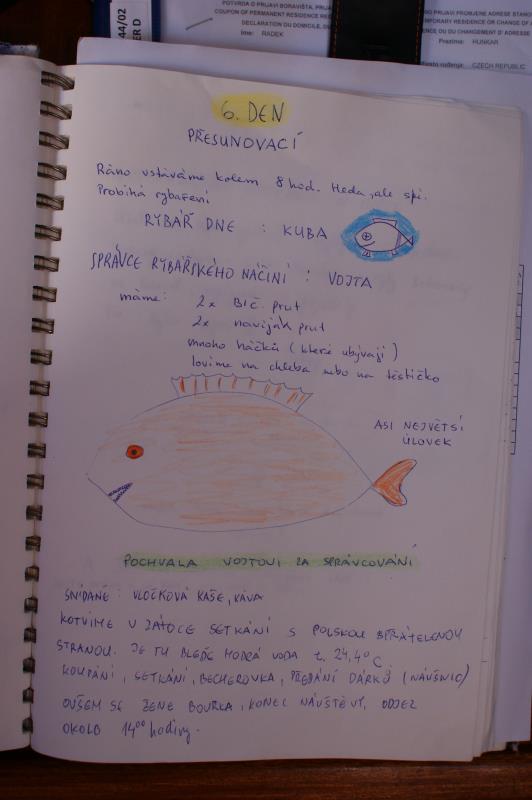 44/02
ER D
POTVRDA O PRIJAVI BORAVIŠTA, PRIJA
COUPON OF PERMANENT RESIDENCE REG
DECLARATION DU DOMICILE, DU
Ime: RADEK
PRIJAVI PROMJENE ADRESE STANO
TEMPORARY RESIDENCE OR CHANGE OF A
CE OU DU CHANGEMENT D' ADRESSE
Prezime: HUNKAR
CZECH REPUBLIC
6. DEN
PŘESUNOVACÍ
Ráno vstáváme kolem 8 hod. Heda, ale spí.
Probíhá rybaření
RYBÁŘ DNE : KUBA
SPRÁVCE RYBÁŘSKÉHO NÁČINÍ : VOJTA
máme: 2x Bič. prut
2x naviják prut
mnoho háčků (které ubývají)
lovíme na chleba nebo na těstíčko
ASI NEJVĚTŠÍ
ÚLOVEK
POCHVALA VOJTOVI ZA SPRÁVCOVÁNÍ
SNÍDANĚ : VLOČKOVÁ KAŠE, KÁVA
KOTVÍME V ZÁTOCE SETKÁNÍ S POLSKOU SPŘÁTELENOU
STRANOU. JE TU BLEDĚ MODRÁ VODA t. 24,4°C
KOUPÁNÍ, SETKÁNÍ, BECHEROVKA, PŘEDÁNÍ DÁRKŮ (NÁUŠNIC)
OVŠEM SE ŽENE BOUŘKA, KONEC NÁVŠTĚVY, ODJEZ
OKOLO 14⁰⁰ hodiny.